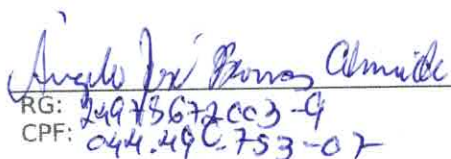 Ângelo José Borras Almeida
RG: 24978672003-9
CPF: 044.490.753-07